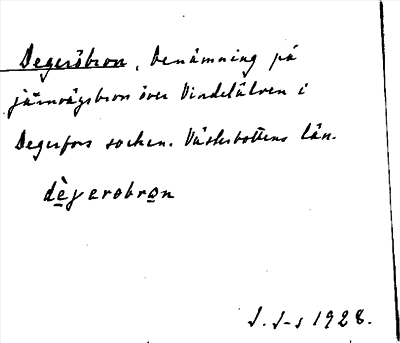 Degeröbron, benämning på
järnvägsbron över Vindelälven i
Degerfors socken. Västerbottens län.
dègerobron
J. J-s 1928.